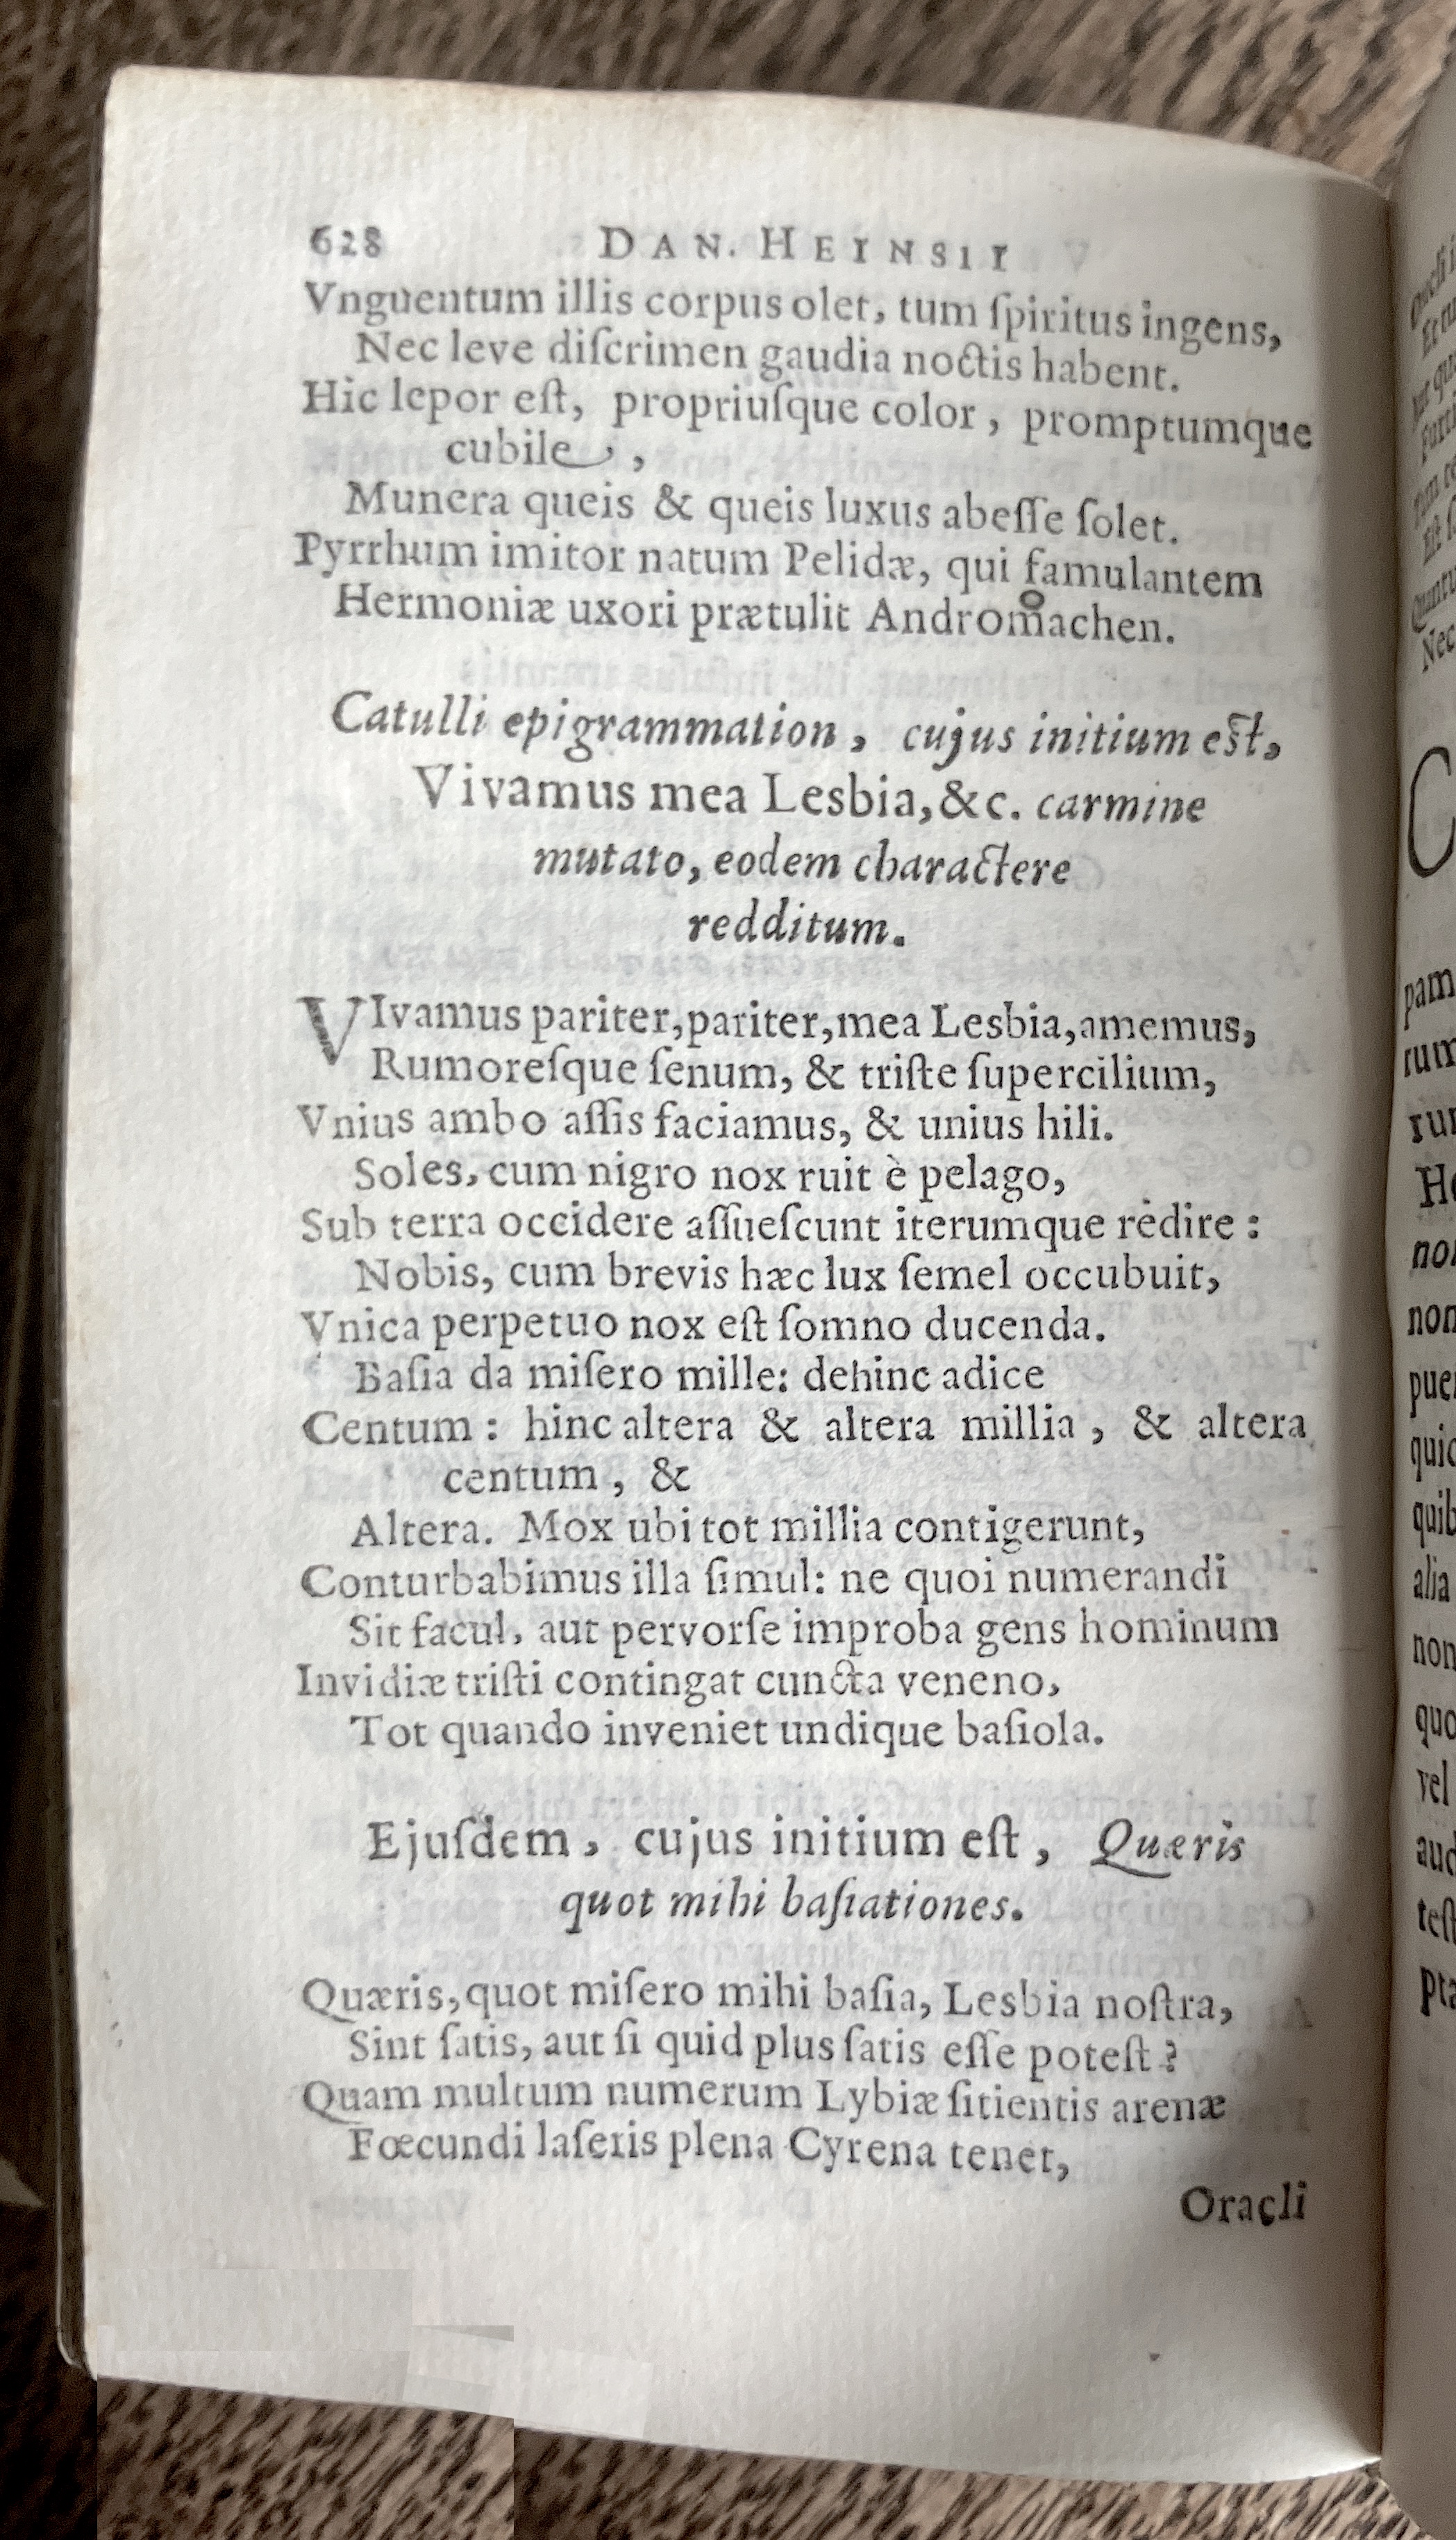 628 DAN. HEINSII
Vnguentum illis corpus olet, tum ſpiritus ingens,
Nec leve diſcrimen gaudia noctis habent.
Hic lepor eſt, propriuſque color, promptumque
cubile,
Munera queis & queis luxus abeſſe ſolet.
Pyrrhum imitor natum Pelidæ, qui famulantem
Hermoniæ uxori prætulit Andromachen.
Catulli epigrammation, cujus initium eſt,
Vivamus mea Lesbia, &c. carmine
mutato, eodem charactere
redditum.
VIvamus pariter, pariter, mea Lesbia, amemus,
Rumoreſque ſenum, & triſte ſupercilium,
Vnius ambo aſſis faciamus, & unius hili.
Soles, cum nigro nox ruit è pelago,
Sub terra occidere aſſueſcunt iterumque redire :
Nobis, cum brevis hæc lux ſemel occubuit,
Vnica perpetuo nox eſt ſomno ducenda.
Baſia da miſero mille: dehinc adice
Centum : hinc altera & altera millia, & altera
centum, &
Altera. Mox ubi tot millia contigerunt,
Conturbabimus illa ſimul: ne quoi numerandi
Sit facul, aut pervorſe improba gens hominum
Invidiæ triſti contingat cuncta veneno,
Tot quando inveniet undique baſiola.
Ejuſdem, cujus initium eſt, Quæris
quot mihi baſiationes.
Quæris, quot miſero mihi baſia, Lesbia noſtra,
Sint ſatis, aut ſi quid plus ſatis eſſe poteſt ?
Quam multum numerum Lybiæ ſitientis arenæ
Fœcundi laſeris plena Cyrena tenet,
Oracli